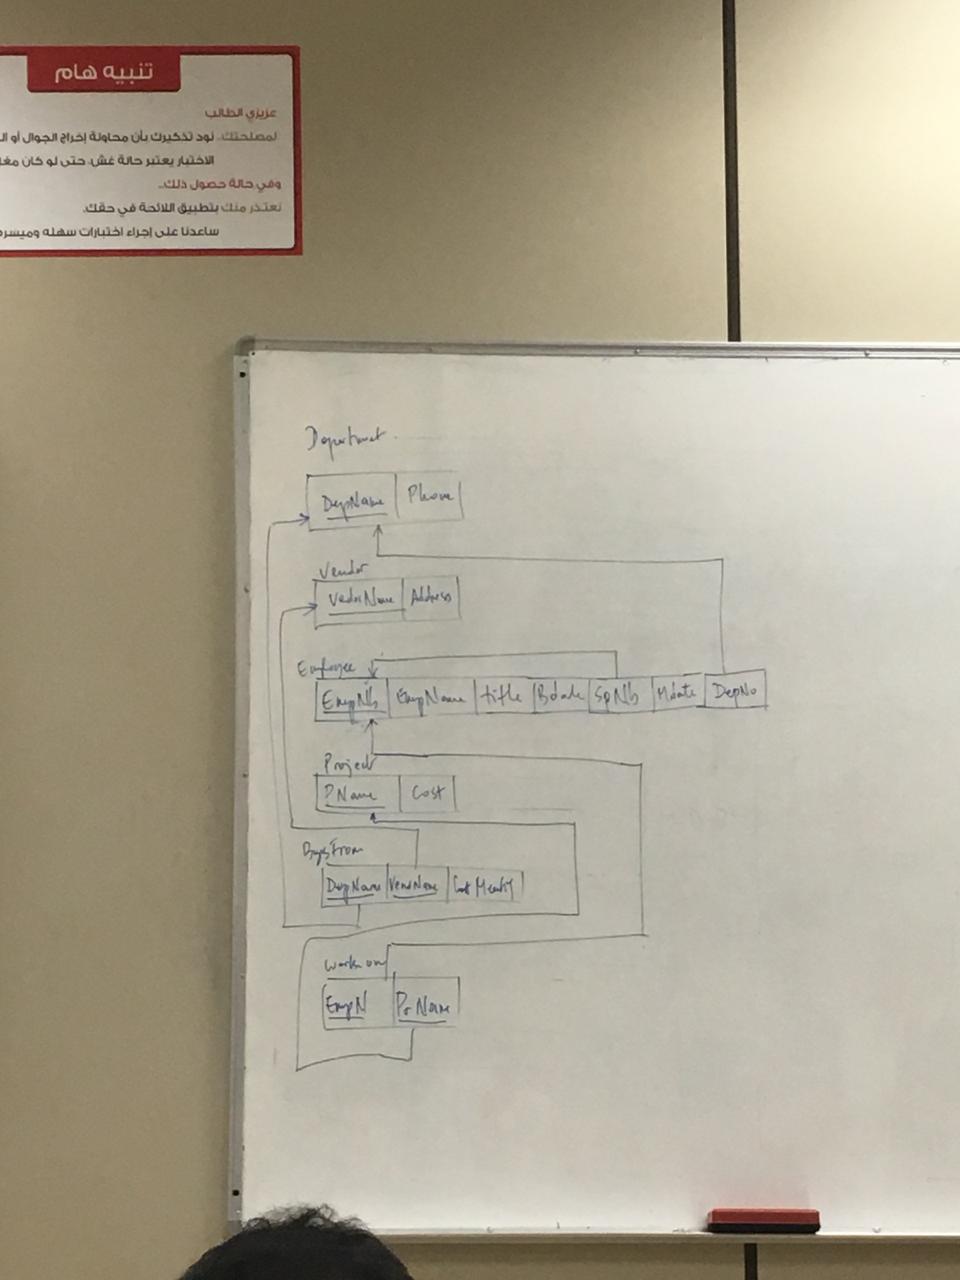 تنبيه هام
عزيزي الطالب
لمصلحتك.. نود تذكيرك بأن محاولة إخراج الجوال أو
الاختبار يعتبر حالة غش، حتى لو كان
وفي حالة حصول ذلك..
نعتذر منك بتطبيق اللائحة في حقك.
ساعدنا على إجراء اختبارات سهله
Department
DepName Phone
Vendor
VedorName Address
Employee
EmpNb EmpName title Bdate SpNb Mdate DepNo
Project
PName Cost
From
DepName VenName
works on
EmpN PrName